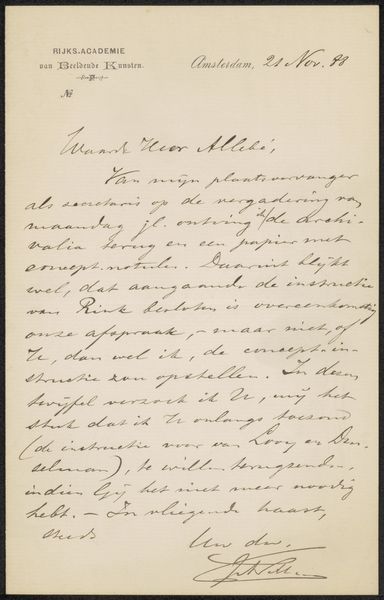 RIJKS-ACADEMIE
van Beeldende Kunsten.
No
Amsterdam, 21 Nov. 88
Waarde Heer Allebé,
Van mijn plaatsvervanger
als secretaris op de vergadering van
maandag jl. ontving ik de archi-
valia terug en een papier met
concept-notulen. Daaruit blijkt
wel, dat aangaande de instructie
van Rink besloten is overeenkomstig
onze afspraak, – maar niet, of
U, dan wel ik, de concept-in-
structie zou opstellen. In dezen
twijfel verzoek ik U, mij het
stuk dat ik U onlangs toezond
(de instructie voor van Looy en Der-
selman), te willen terugzenden,
indien Gij het niet meer noodig
hebt. – In vliegende haast,
steeds
Uw dw.